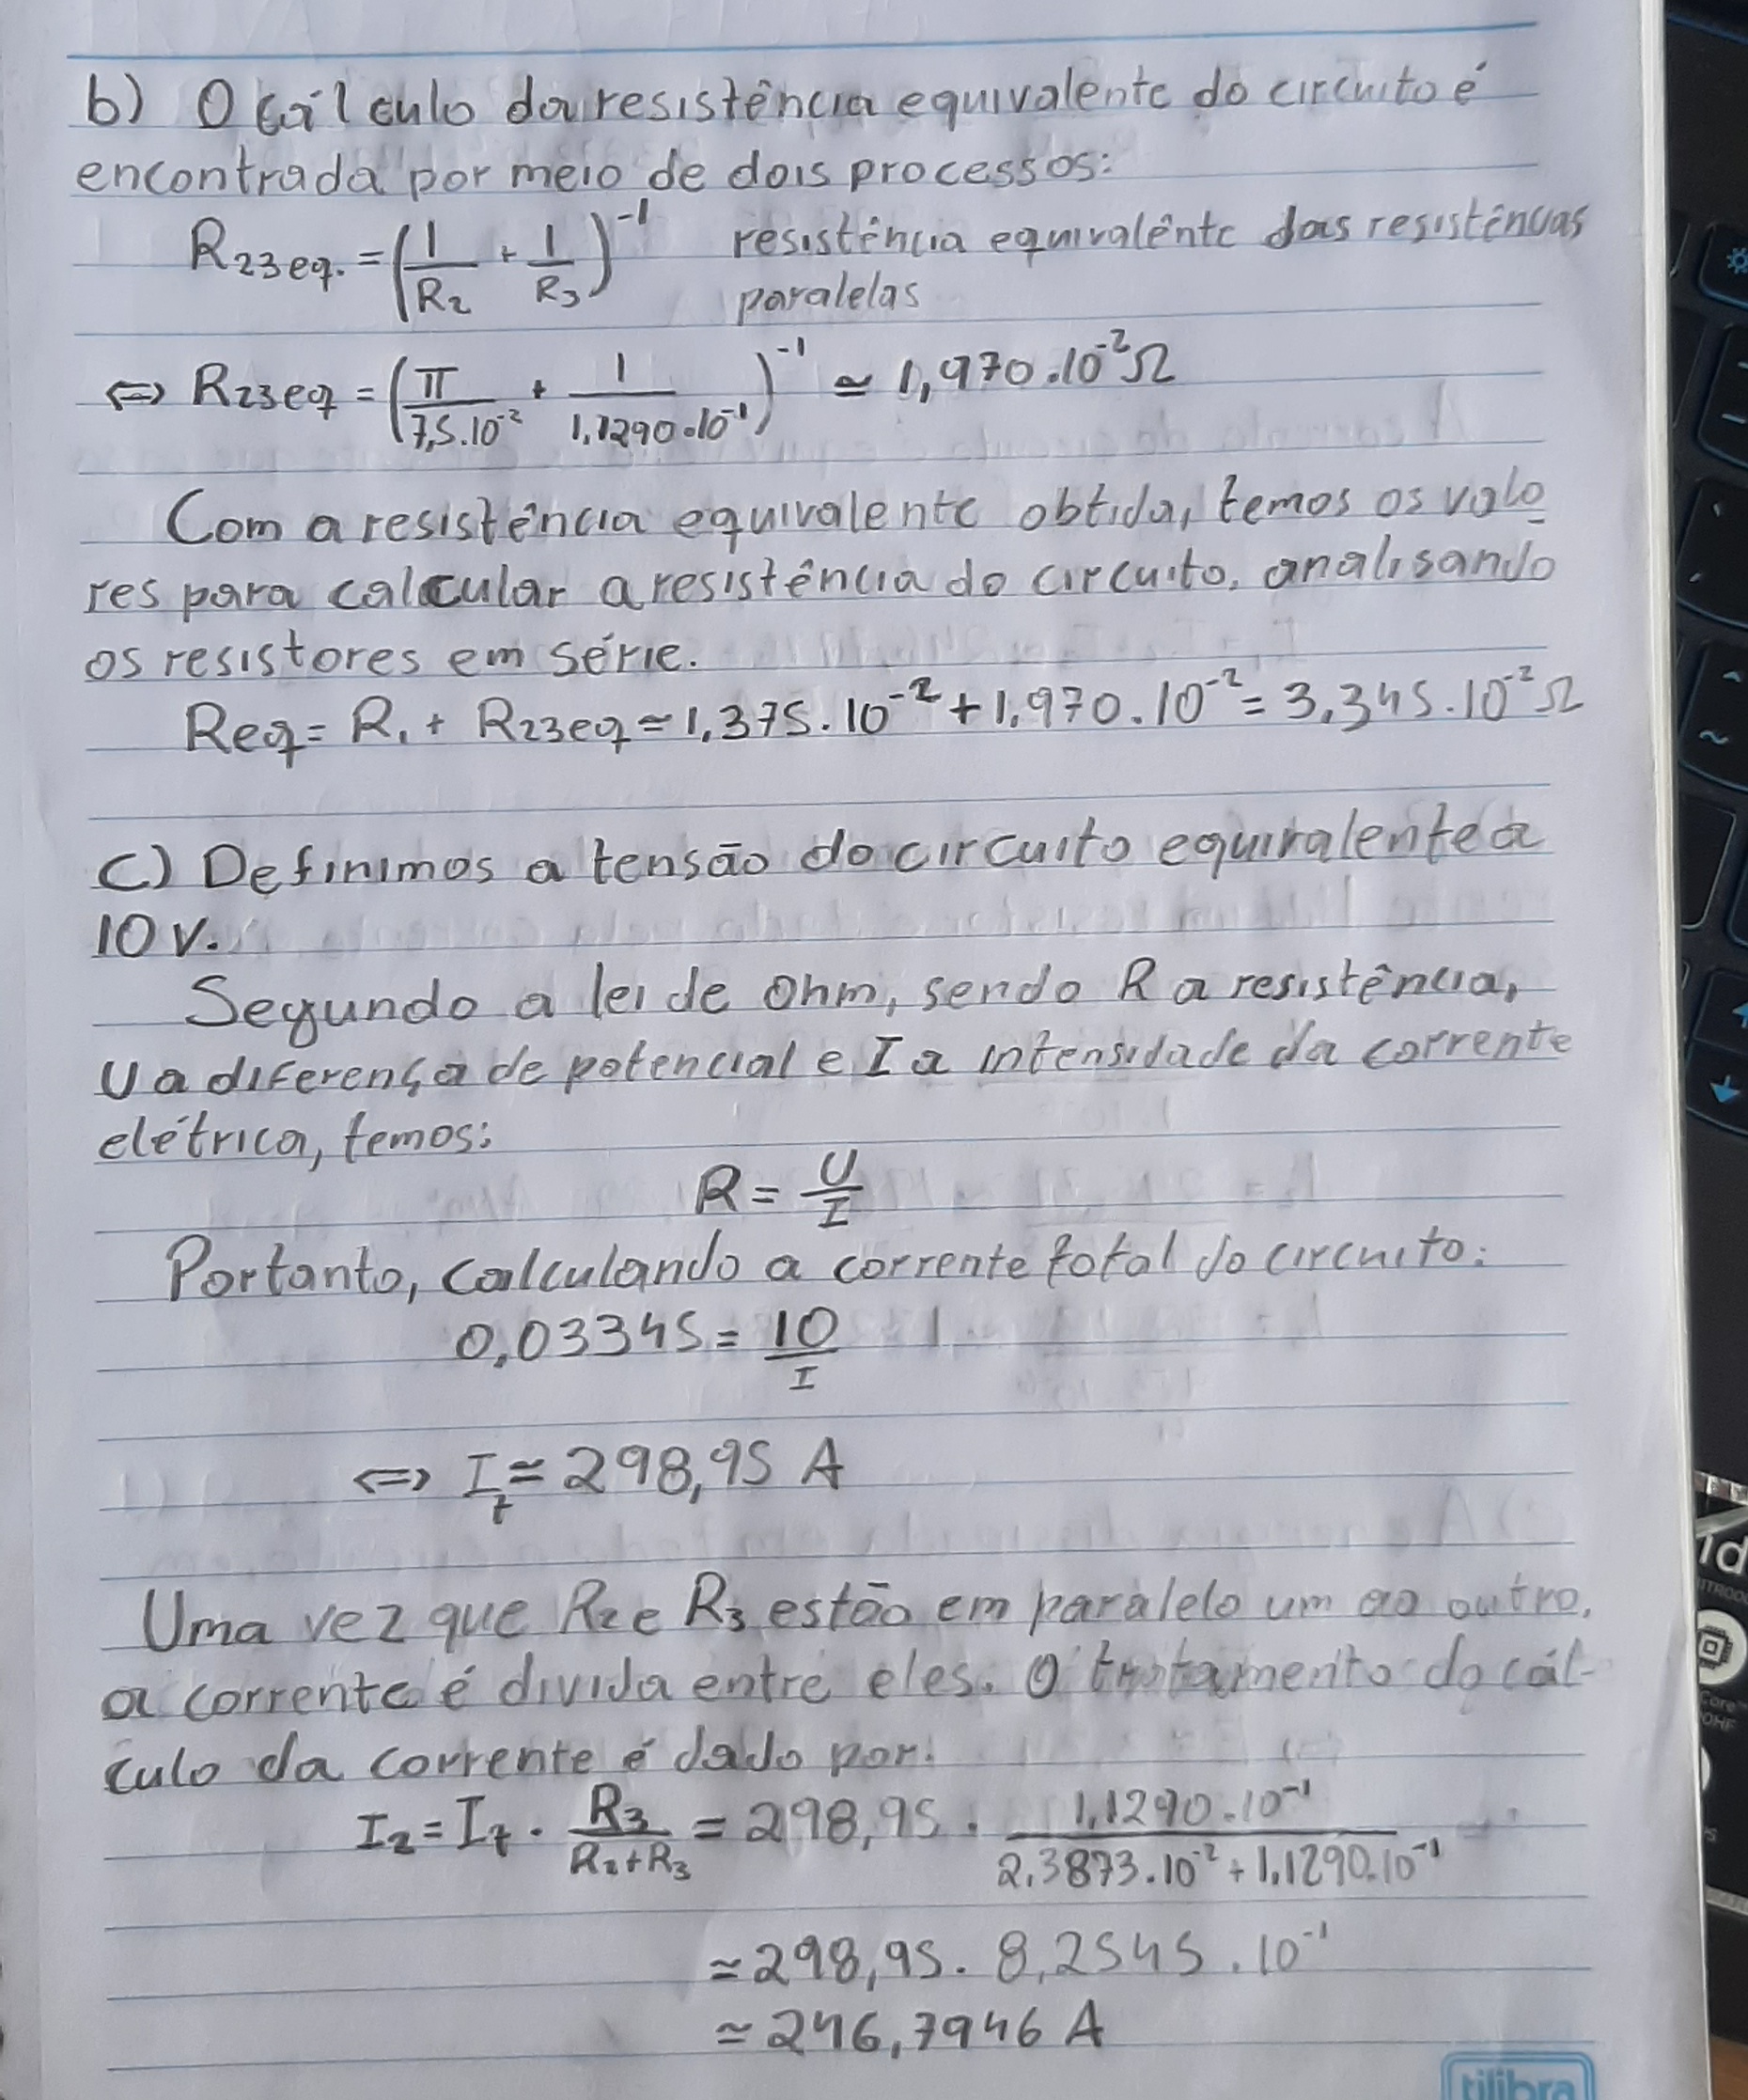 b) O cálculo da resistência equivalente do circuito é
encontrada por meio de dois processos:
R23eq. = (1/R2 + 1/R3)^-1 resistência equivalênte das resistências
paralelas
⇔ R23eq = (π/7,5.10^-2 + 1/1,1290.10^-1)^-1 ≃ 1,970.10^-2 Ω
Com a resistência equivalente obtida, temos os valo
res para calcular a resistência do circuito, analisando
os resistores em série.
Req = R1 + R23eq ≃ 1,375.10^-2 + 1,970.10^-2 = 3,345.10^-2 Ω
C) Definimos a tensão do circuito equivalente a
10 V.
Segundo a lei de Ohm, sendo R a resistência,
U a diferença de potencial e I a intensidade da corrente
elétrica, temos:
R = U/I
Portanto, calculando a corrente total do circuito:
0,03345 = 10/I
⇔ It ≃ 298,95 A
Uma vez que R2 e R3 estão em paralelo um ao outro,
a corrente é divida entre eles. O tratamento do cál-
culo da corrente é dado por:
I2 = It . R3/R2+R3 = 298,95 . 1,1290.10^-1/2,3873.10^-2 + 1,1290.10^-1
≃ 298,95 . 8,2545 . 10^-1
≃ 246,7946 A
tilibra